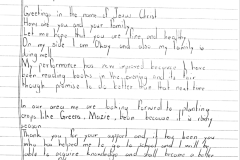 Greetings in the name of Jesus Christ
How are you and your family.
Let me hope that you are fine and healthy
On my side I am okay and also my family is
living well
My performance has even improved because I have
been reading books in the morning and its fair
though promise to do better than that next term
In our area we are looking forward to planting
crops like Greens Maize, bean because it is rainy
season
Thank you for your support and it has been you
who has helped me to go to school and I will be
able to acquire knowledge and shall become a better